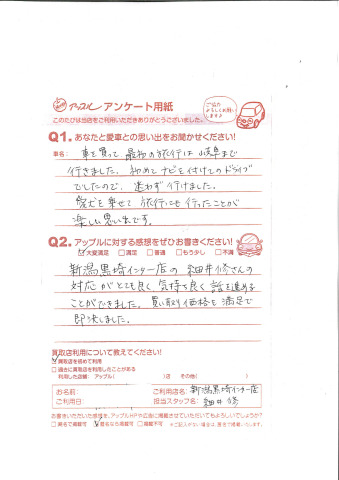 アップル アンケート用紙
このたびは当店をご利用いただきありがとうございました。
ご協力
よろしくお願い
します♪
Q1. あなたと愛車との思い出をお聞かせください!
車名: 車を買って最初の旅行は岐阜まで
行きました。初めてナビを付けてのドライブ
でしたので、迷わず行けました。
愛犬を乗せて旅行にも行ったことが
楽しい思い出です。
Q2. アップルに対する感想をぜひお書きください!
☑大変満足 □満足 □普通 □もう少し □不満
新潟黒埼インター店の細井修さんの
対応がとても良く気持ち良く話を進める
ことができました。買い取り価格も満足で
即決しました。
買取店利用について教えてください!
☑買取店を初めて利用
□過去に買取店を利用したことがある
利用した店舗: アップル( )店 その他( )
お名前: ご利用店名: 新潟黒埼インター店
ご利用日: 担当スタッフ名: 細井 修
お書きいただいた感想を、アップルHPや広告に掲載させていただいてもよろしいでしょうか?
□実名で掲載可 ☑匿名なら掲載可 □掲載不可 ※ご記入がない場合は、匿名で掲載いたします。